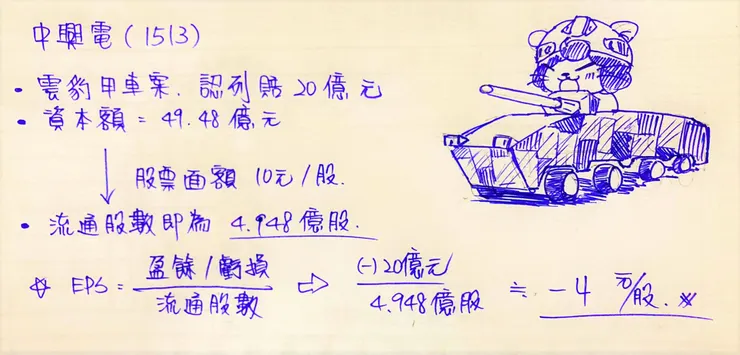 中興電(1513)
• 雲豹甲車案、認列賠20億元
• 資本額 = 49.48億元
↓ 股票面額 10元/股.
• 流通股數即為 4.948億股.
☆ EPS = 盈餘/虧損 / 流通股數 ⇨ (-)20億元 / 4.948億股 ≒ -4 元/股. ※